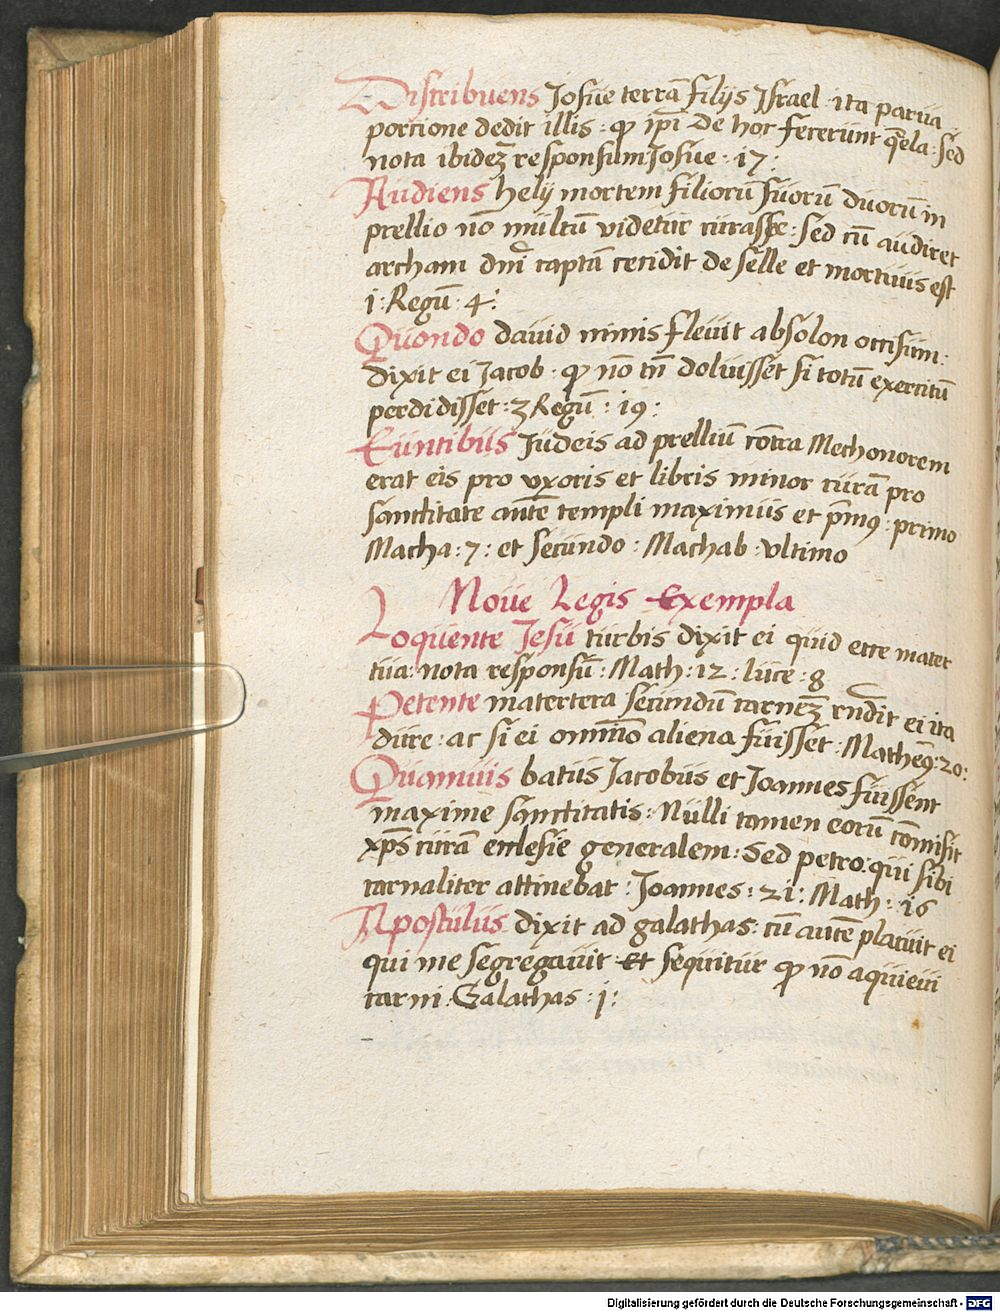 Distribuens Josue terrā filijs Jsrael : ita parua
porcione dedit illis : ꝙ ip̄i de hoc fecerūnt q̄rela : sed
nota ibidez responsum Josue : 17 :
Audiens helij mortem filiorū suorū duorū in
prellio nō multū videtur curasse : sed cū audiret
archam dn̄i captā cecidit de selle et mortuus est
j : Regū : 4 :
Quondo dauid nimis fleuit absolon occisum :
dixit ei Jacob : ꝙ nō tn̄ doluisset si totū exercitū
perdidisset : 3 Regū : 19 :
Euntibus Judeis ad prelliū cōtra Methonorem
erat eis pro vxoris et libris minor curā pro
sanctitate autē templi maximus et p̄mꝰ : primo
Macha : 7 : et secundo : Machab : vltimo
Noue Legis Exempla
Loquente Jesu turbis dixit ei quid ecce mater
tua : nota responsū : Math : 12 : luce : 8
Petente matertera secundū carnez rn̄dit ei ita
dure : ac si ei om̄īo aliena fuisset : Matheꝰ : 20 :
Quamuis batus Jacobus et Joannes fuissent
maxime sanctitatis : Nulli tamen eorū cōmisit
xp̄s curā ecclesie generalem : sed petro : qui sibi
carnaliter attinebat : Joannes : 21 : Math : 16
Apostulus dixit ad galathas : cū autē placuit ei
qui me segregauit et sequitur ꝙ nō aquieui
carni : Galathas : j :
Digitalisierung gefördert durch die Deutsche Forschungsgemeinschaft - DFG